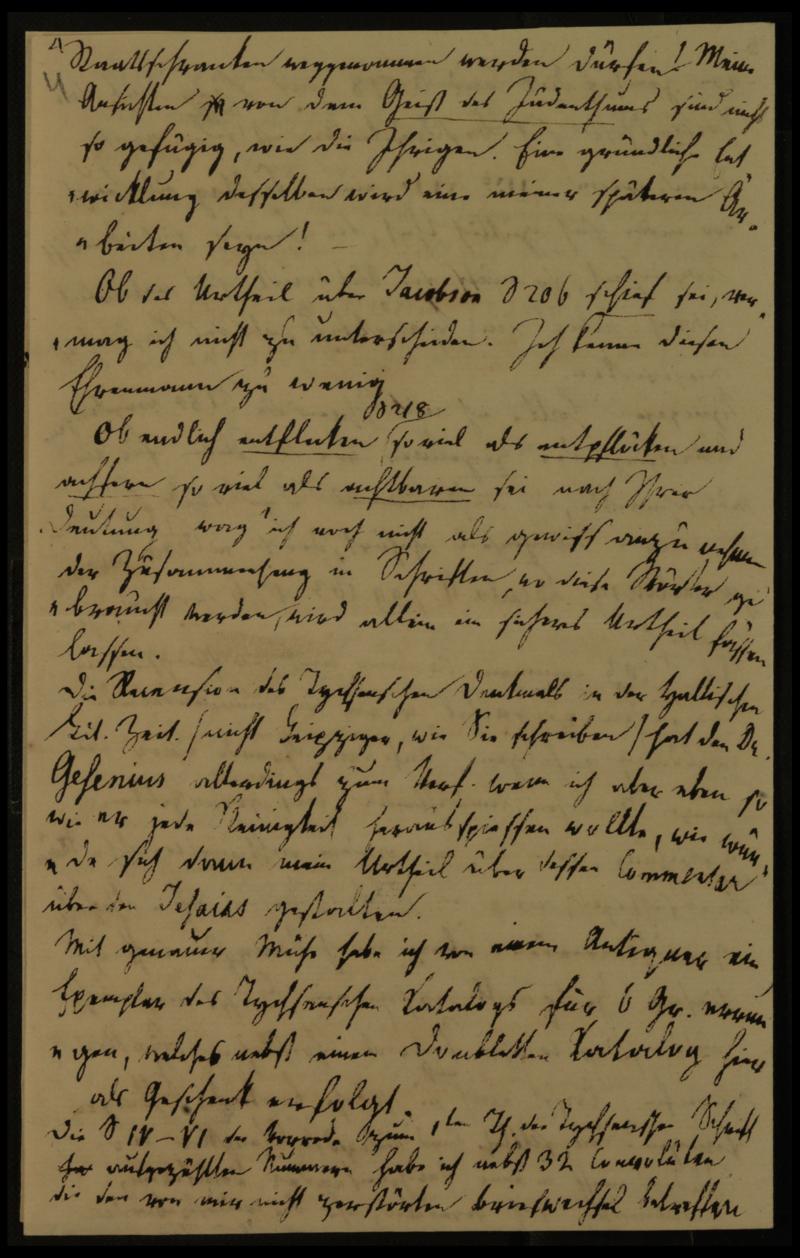 Staatsschranken weggenommen werden dürfen! Meine
Ansichten von dem Geist des Judenthums sind nicht
so gefügig, wie die Ihrigen. Eine gründliche Ent
wicklung desselben wird eine meiner späteren Ar-
beiten seyn! —
Ob das Urtheil über Jacobson S 206 schief sei, ver-
mag ich nicht zu unterscheiden. Ich kenne diesen
Ehrenmann zu wenig
S 218
Ob endlich entflecken so viel als entpflücken und
achssern so viel als achtbaren sei nach Ihrer
Deutung wag' ich noch nicht als gewiss anzunehmen
der Zusammenhang in Schriften, wo diese Wörter ge
braucht werden, wird allein ein sicheres Urtheil fassen
lassen.
Die Recension des Tychsenschen Denkmals in der Hallischen
Lit. Zeit. (nicht Leipziger, wie Sie schreiben) hat den Dr.
Gesenius allerdings zum Verf. wenn ich aber eben so
wie er jede Kleinigkeit herausspiessen wollte, wie wür-
de sich dann mein Urtheil über dessen Commentar
über den Jesaias gestalten.
Mit genauer Mühe habe ich von einem Antiquar ein
Exemplar des Tychsenschen Katalogs für 6 Gr. errun
gen, welches nebst einem Doubletten Katalog hier
als Geschenk erfolgt.
Die S IV–VI der Vorrede zum 1ten Th. der Tychsenschen Schrift
aufgezählten Nummern habe ich nebst 32 Convoluten
die den von mir nicht zerstörten Briefwechsel betreffen